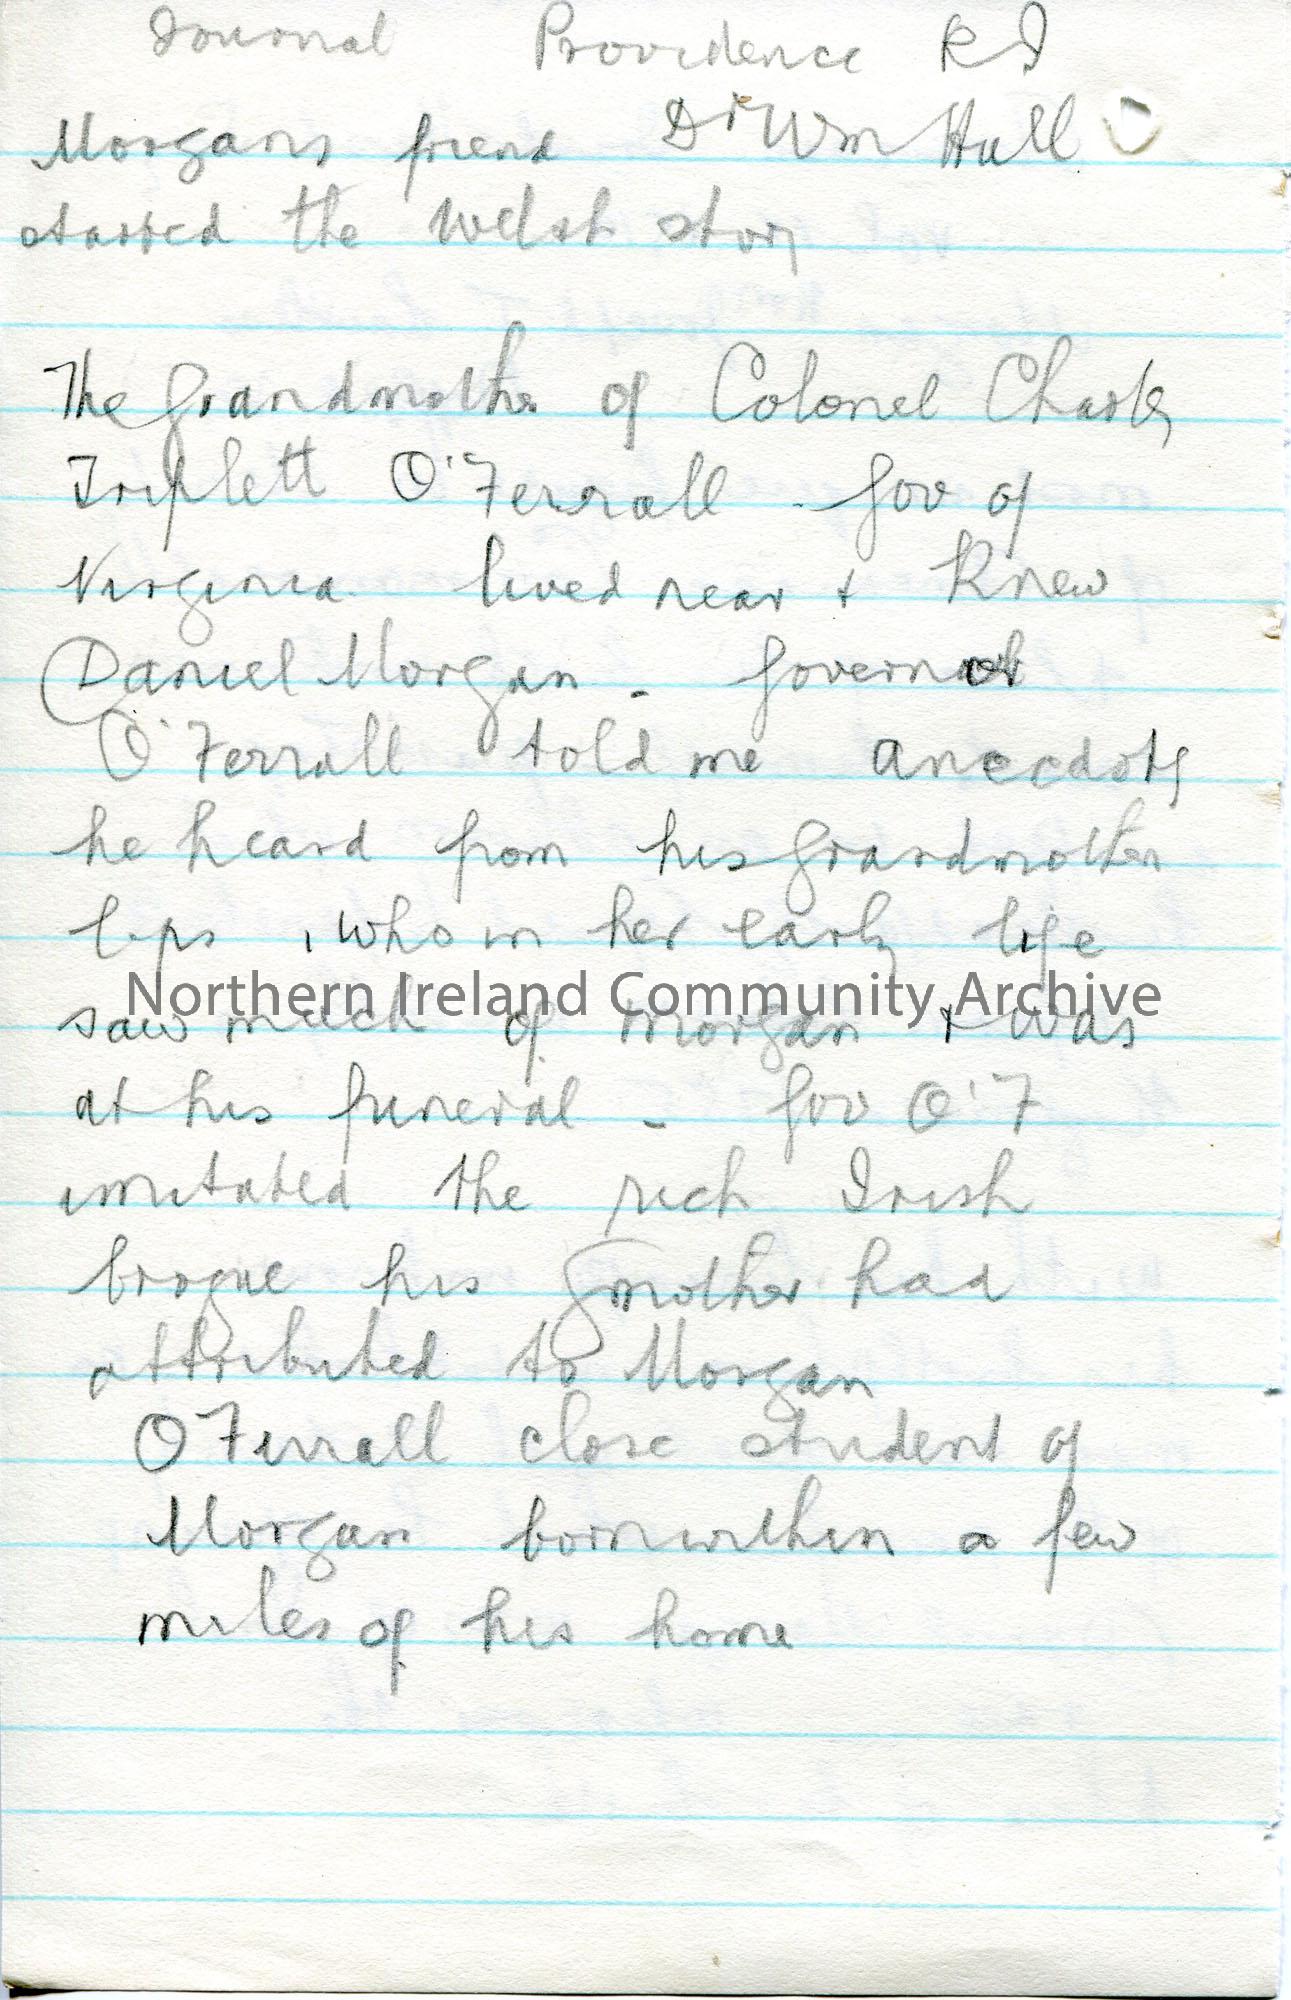 Journal Providence R I
Morgans friend Dr Wm Hull
started the Welsh story
The Grandmother of Colonel Charles
Triplett O'Ferrall - Gov of
Virginia lived near + Knew
Daniel Morgan - Governor
O'Ferrall told me anecdots
he heard from his Grandmother
lips , who in her early life
Northern Ireland Community Archive
saw much of Morgan + was
at his funeral - Gov O'F
imitated the rich Irish
brogue his Gmother had
attributed to Morgan
O Ferrall close student of
Morgan born within a few
miles of his home